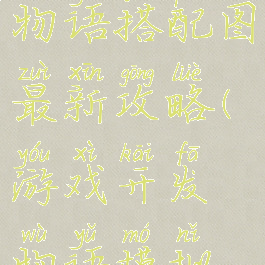 物语搭配图
zuì xīn gōng lüè
最新攻略(
yóu xì kāi fā
游戏开发
wù yǔ mó nǐ